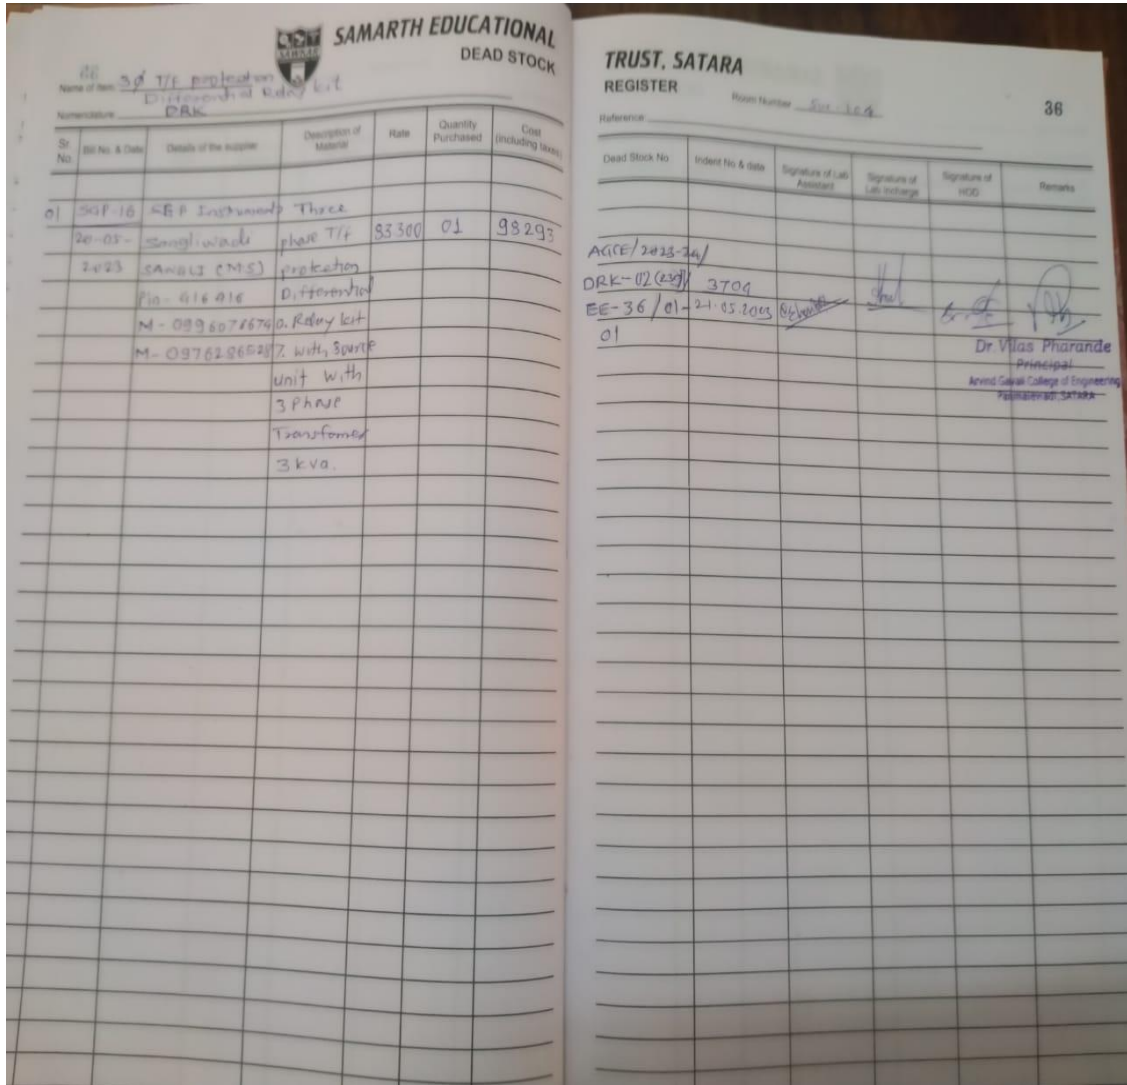 SAMARTH EDUCATIONAL
DEAD STOCK
SAWKAR
Name of Item: 3Ø T/F protection
Differential Relay kit
Nomenclature DRK
Sr. No. Bill No. & Date Details of the supplier Description of Material Rate Quantity Purchased Cost (including taxes)
01 SGP-16 Instruments Three
20-05- Sangliwadi phase T/f 83300 01 98293
2023 SANGLI (M.S) protection
Pin- 416416 Differential
Relay kit
with Source
unit with
3 Phase
Transformer
3 kva.
TRUST, SATARA
REGISTER
Room Number
36
Reference:
Dead Stock No Indent No & date Signature of Lab Assistant Signature of Lab Incharge Signature of HOD Remarks
AGCE/2023-24/
DRK-02(239)/ 3704
EE-36/01- 21.05.2023
01
Dr. Vilas Pharande
Principal
Arvind Gavali College of Engineering
Panmalewadi, SATARA